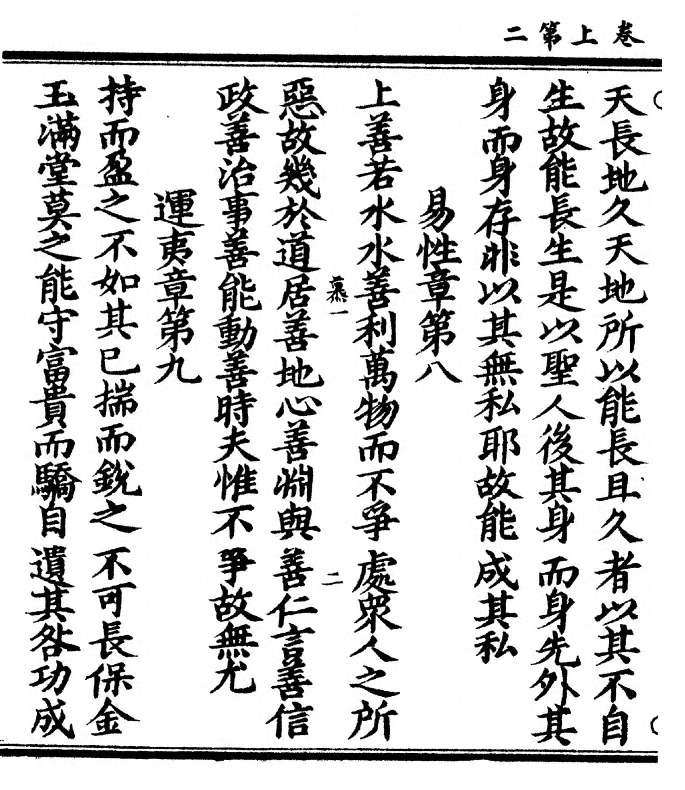 卷上第二
天長地久天地所以能長且久者以其不自
生故能長生是以聖人後其身而身先外其
身而身存非以其無私耶故能成其私
易性章第八
上善若水水善利萬物而不爭處衆人之所
慕一
二
惡故幾於道居善地心善淵與善仁言善信
政善治事善能動善時夫惟不爭故無尤
運夷章第九
持而盈之不如其已揣而銳之不可長保金
玉滿堂莫之能守富貴而驕自遺其咎功成